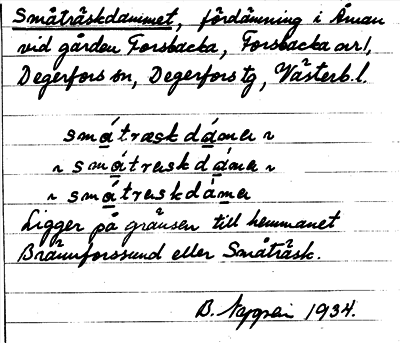 Småträskdammet, fördämning i Åman
vid gården Forsbacka, Forsbacka nr 1,
Degerfors sn, Degerfors tg, Västerb. l.
smátræsk dámǝ ~
~ smátrask dámǝ ~
~ smátrask dámǝ
Ligger på gränsen till hemmanet
Brännforssund eller Småträsk.
B. Nygren 1934.